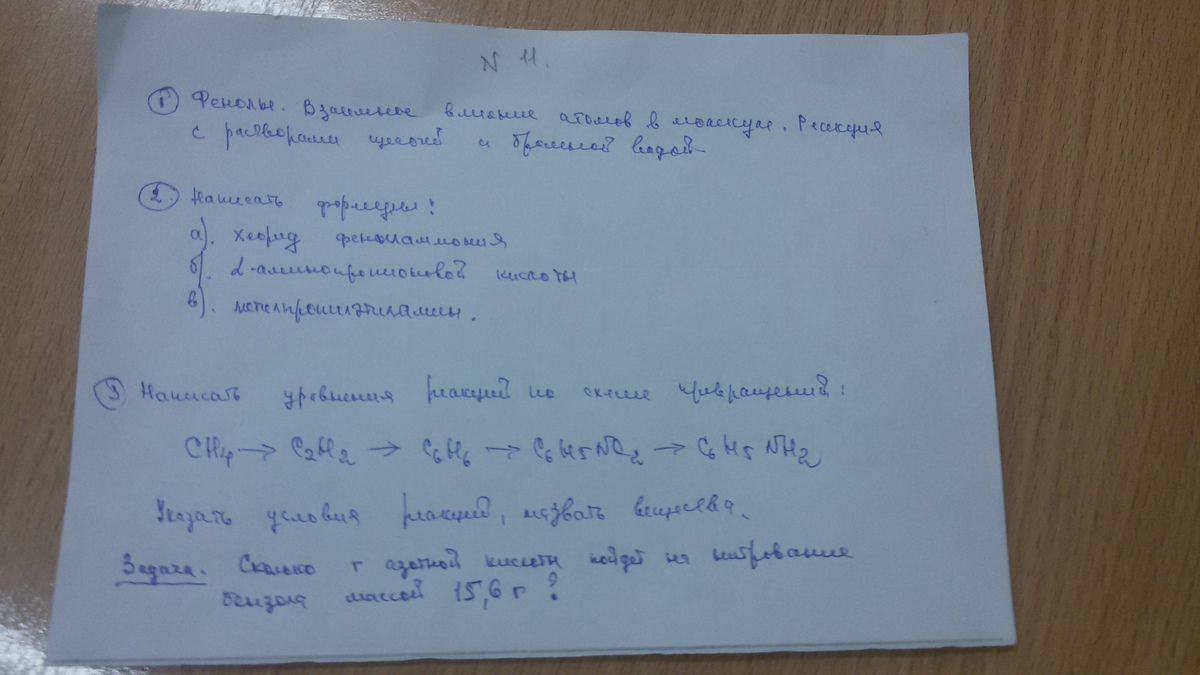 N 11.
① Фенолы. Взаимное влияние атомов в молекуле. Реакция
с растворами щелочей и бромной водой
②. Написать формулы:
а). хлорид фениламмония
б). α-аминопропионовой кислоты
в). метилпропилэтиламин.
③ Написать уравнения реакций по схеме превращений:
CH4 → C2H2 → C6H6 → C6H5NO2 → C6H5NH2
Указать условия реакций, назвать вещества.
Задача. Сколько г азотной кислоты пойдет на нитрование
бензола массой 15,6 г?